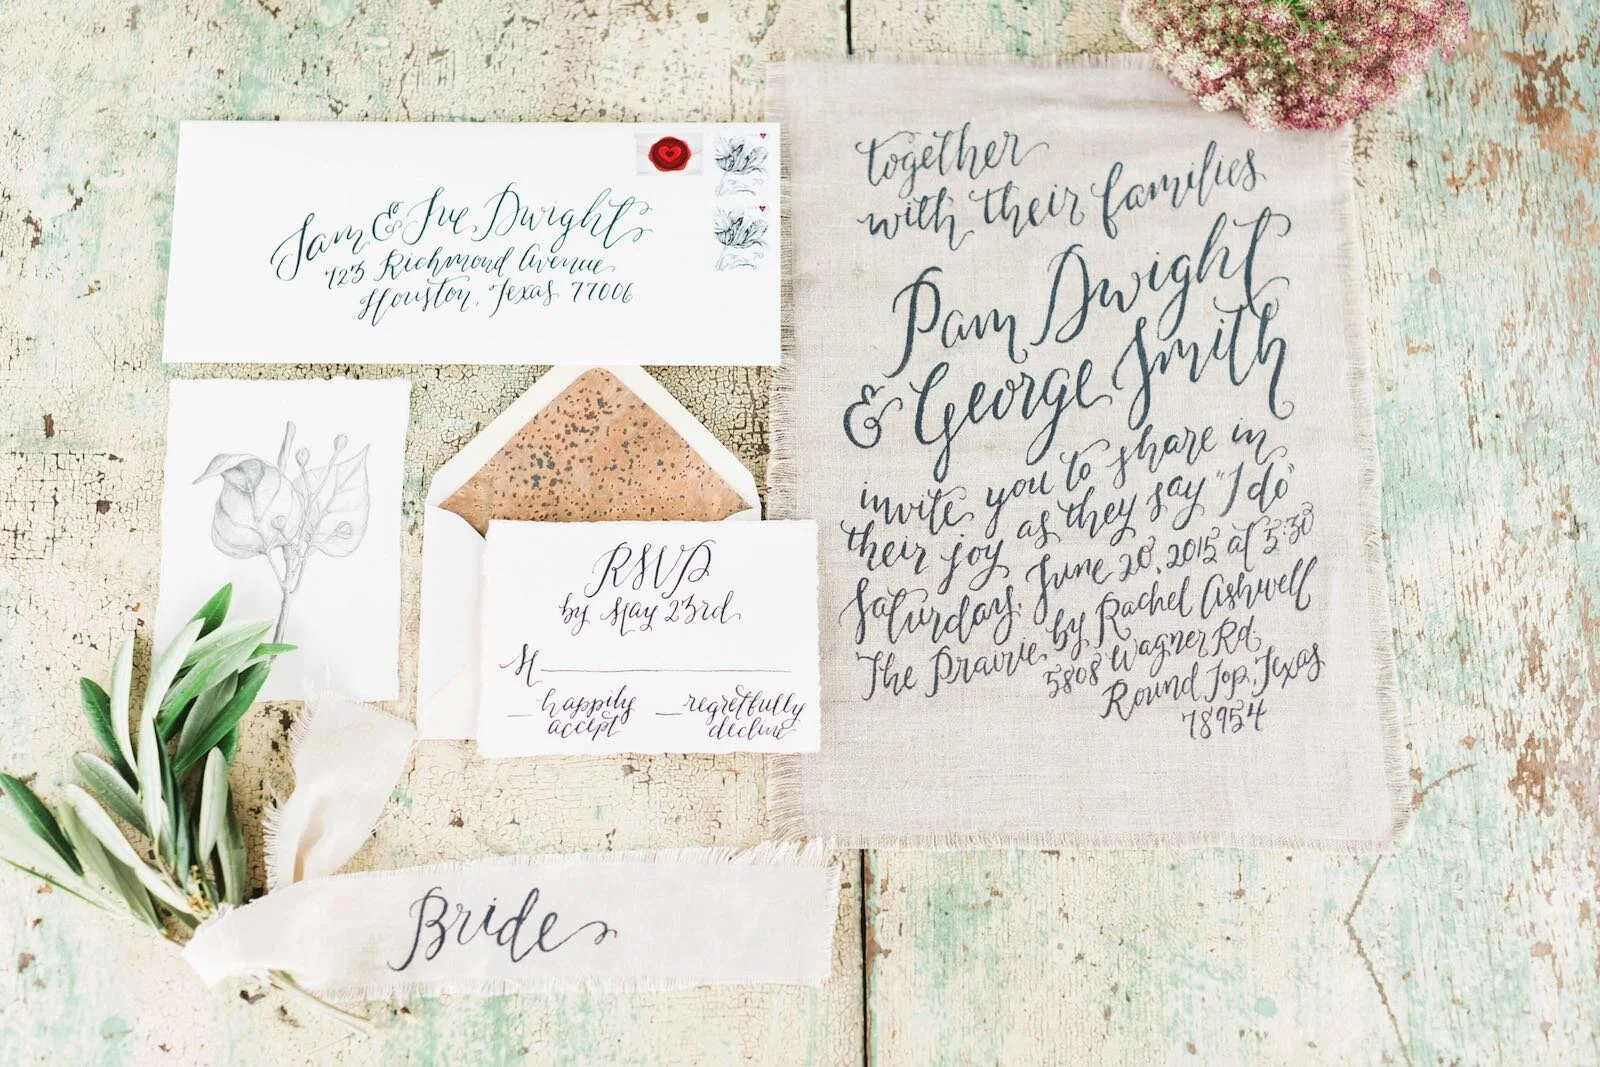 Sam & Sue Dwight
723 Richmond Avenue
Houston, Texas 77006
70
70
RSVP
by May 23rd
M
happily
accept
regretfully
decline
Bride
together
with their families
Pam Dwight
& George Smith
invite you to share in
their joy as they say "I do"
Saturday, June 20, 2015 at 5:30
The Prairie by Rachel Ashwell
5808 Wagner Rd
Round Top, Texas
78954